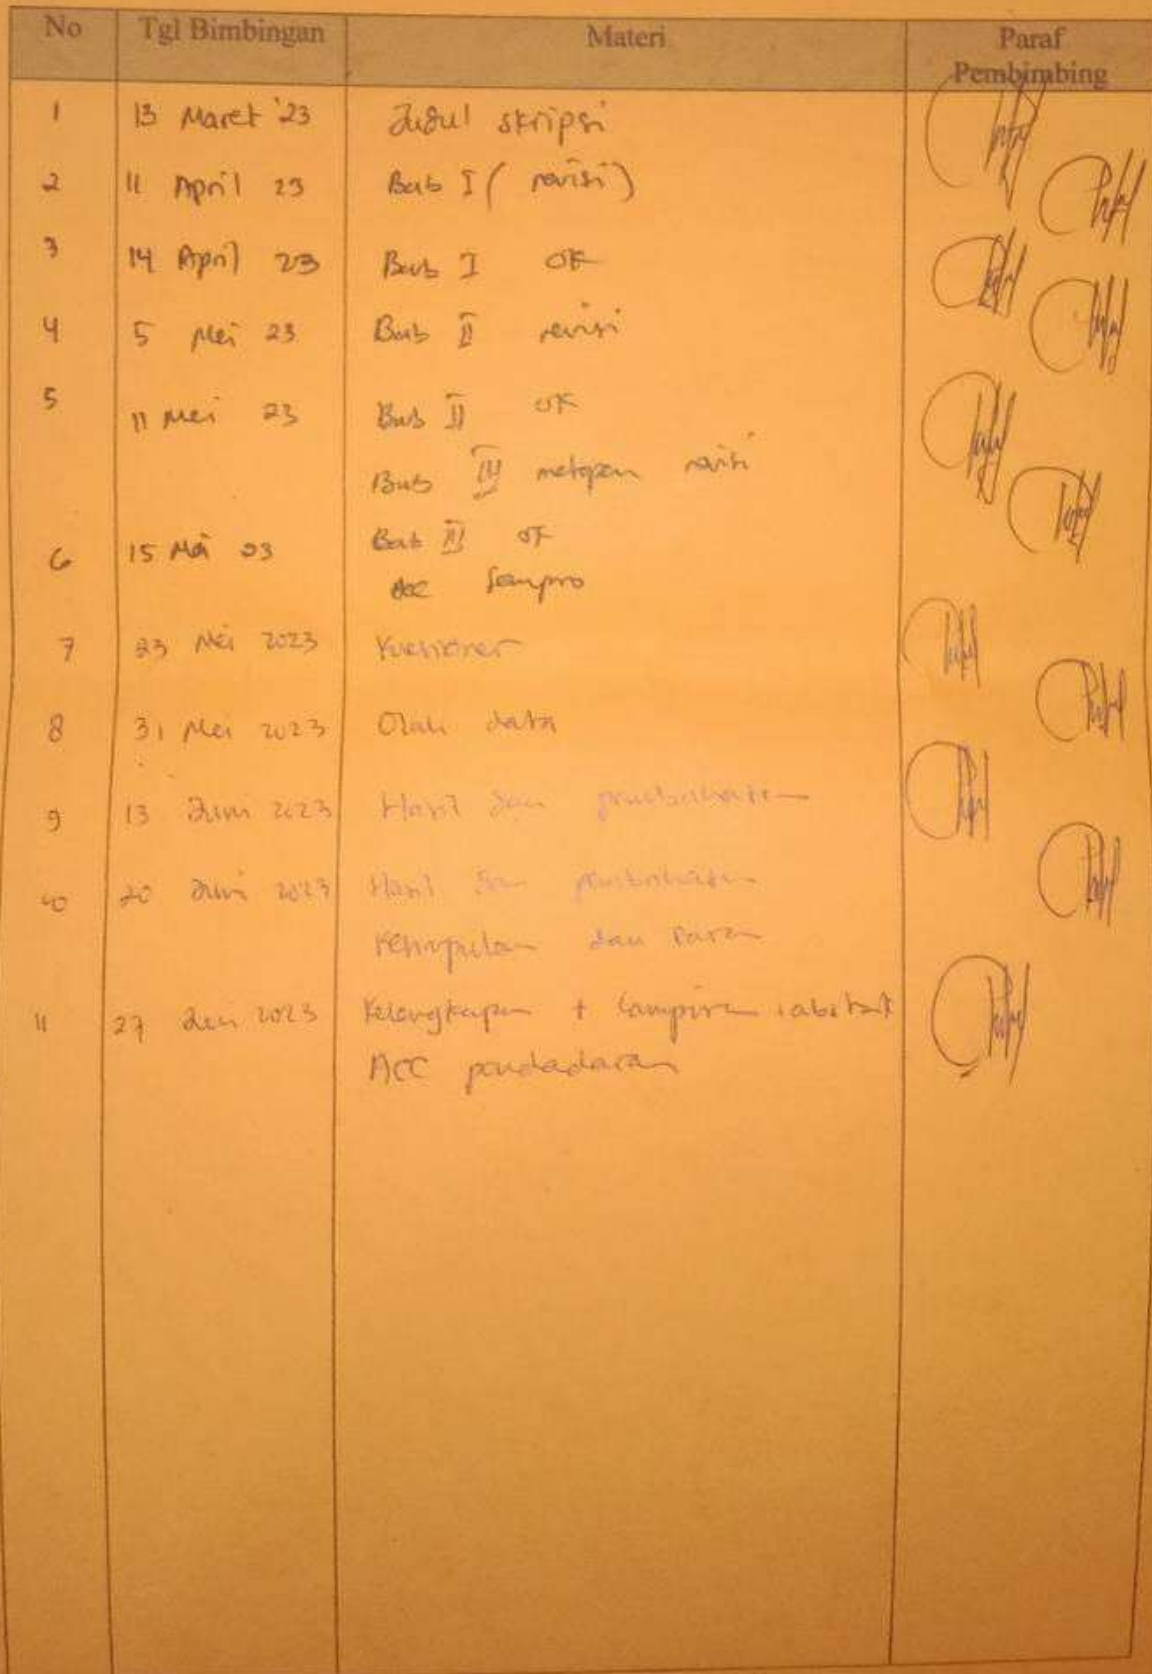 No Tgl Bimbingan Materi Paraf
Pembimbing
1 13 Maret '23 Judul skripsi
2 11 April 23 Bab I ( revisi )
3 14 April 23 Bab I OK
4 5 Mei 23 Bab II revisi
5 11 Mei 23 Bab II OK
Bab III metopen revisi
6 15 Mei 23 Bab III OK
ACC Sempro
7 23 Mei 2023 Kuesioner
8 31 Mei 2023 Olah data
9 13 Juni 2023 Hasil dan pembahasan
10 20 Juni 2023 Hasil dan pembahasan
Kesimpulan dan saran
11 27 Juni 2023 Kelengkapan + lampiran, abstrak
ACC pendadaran